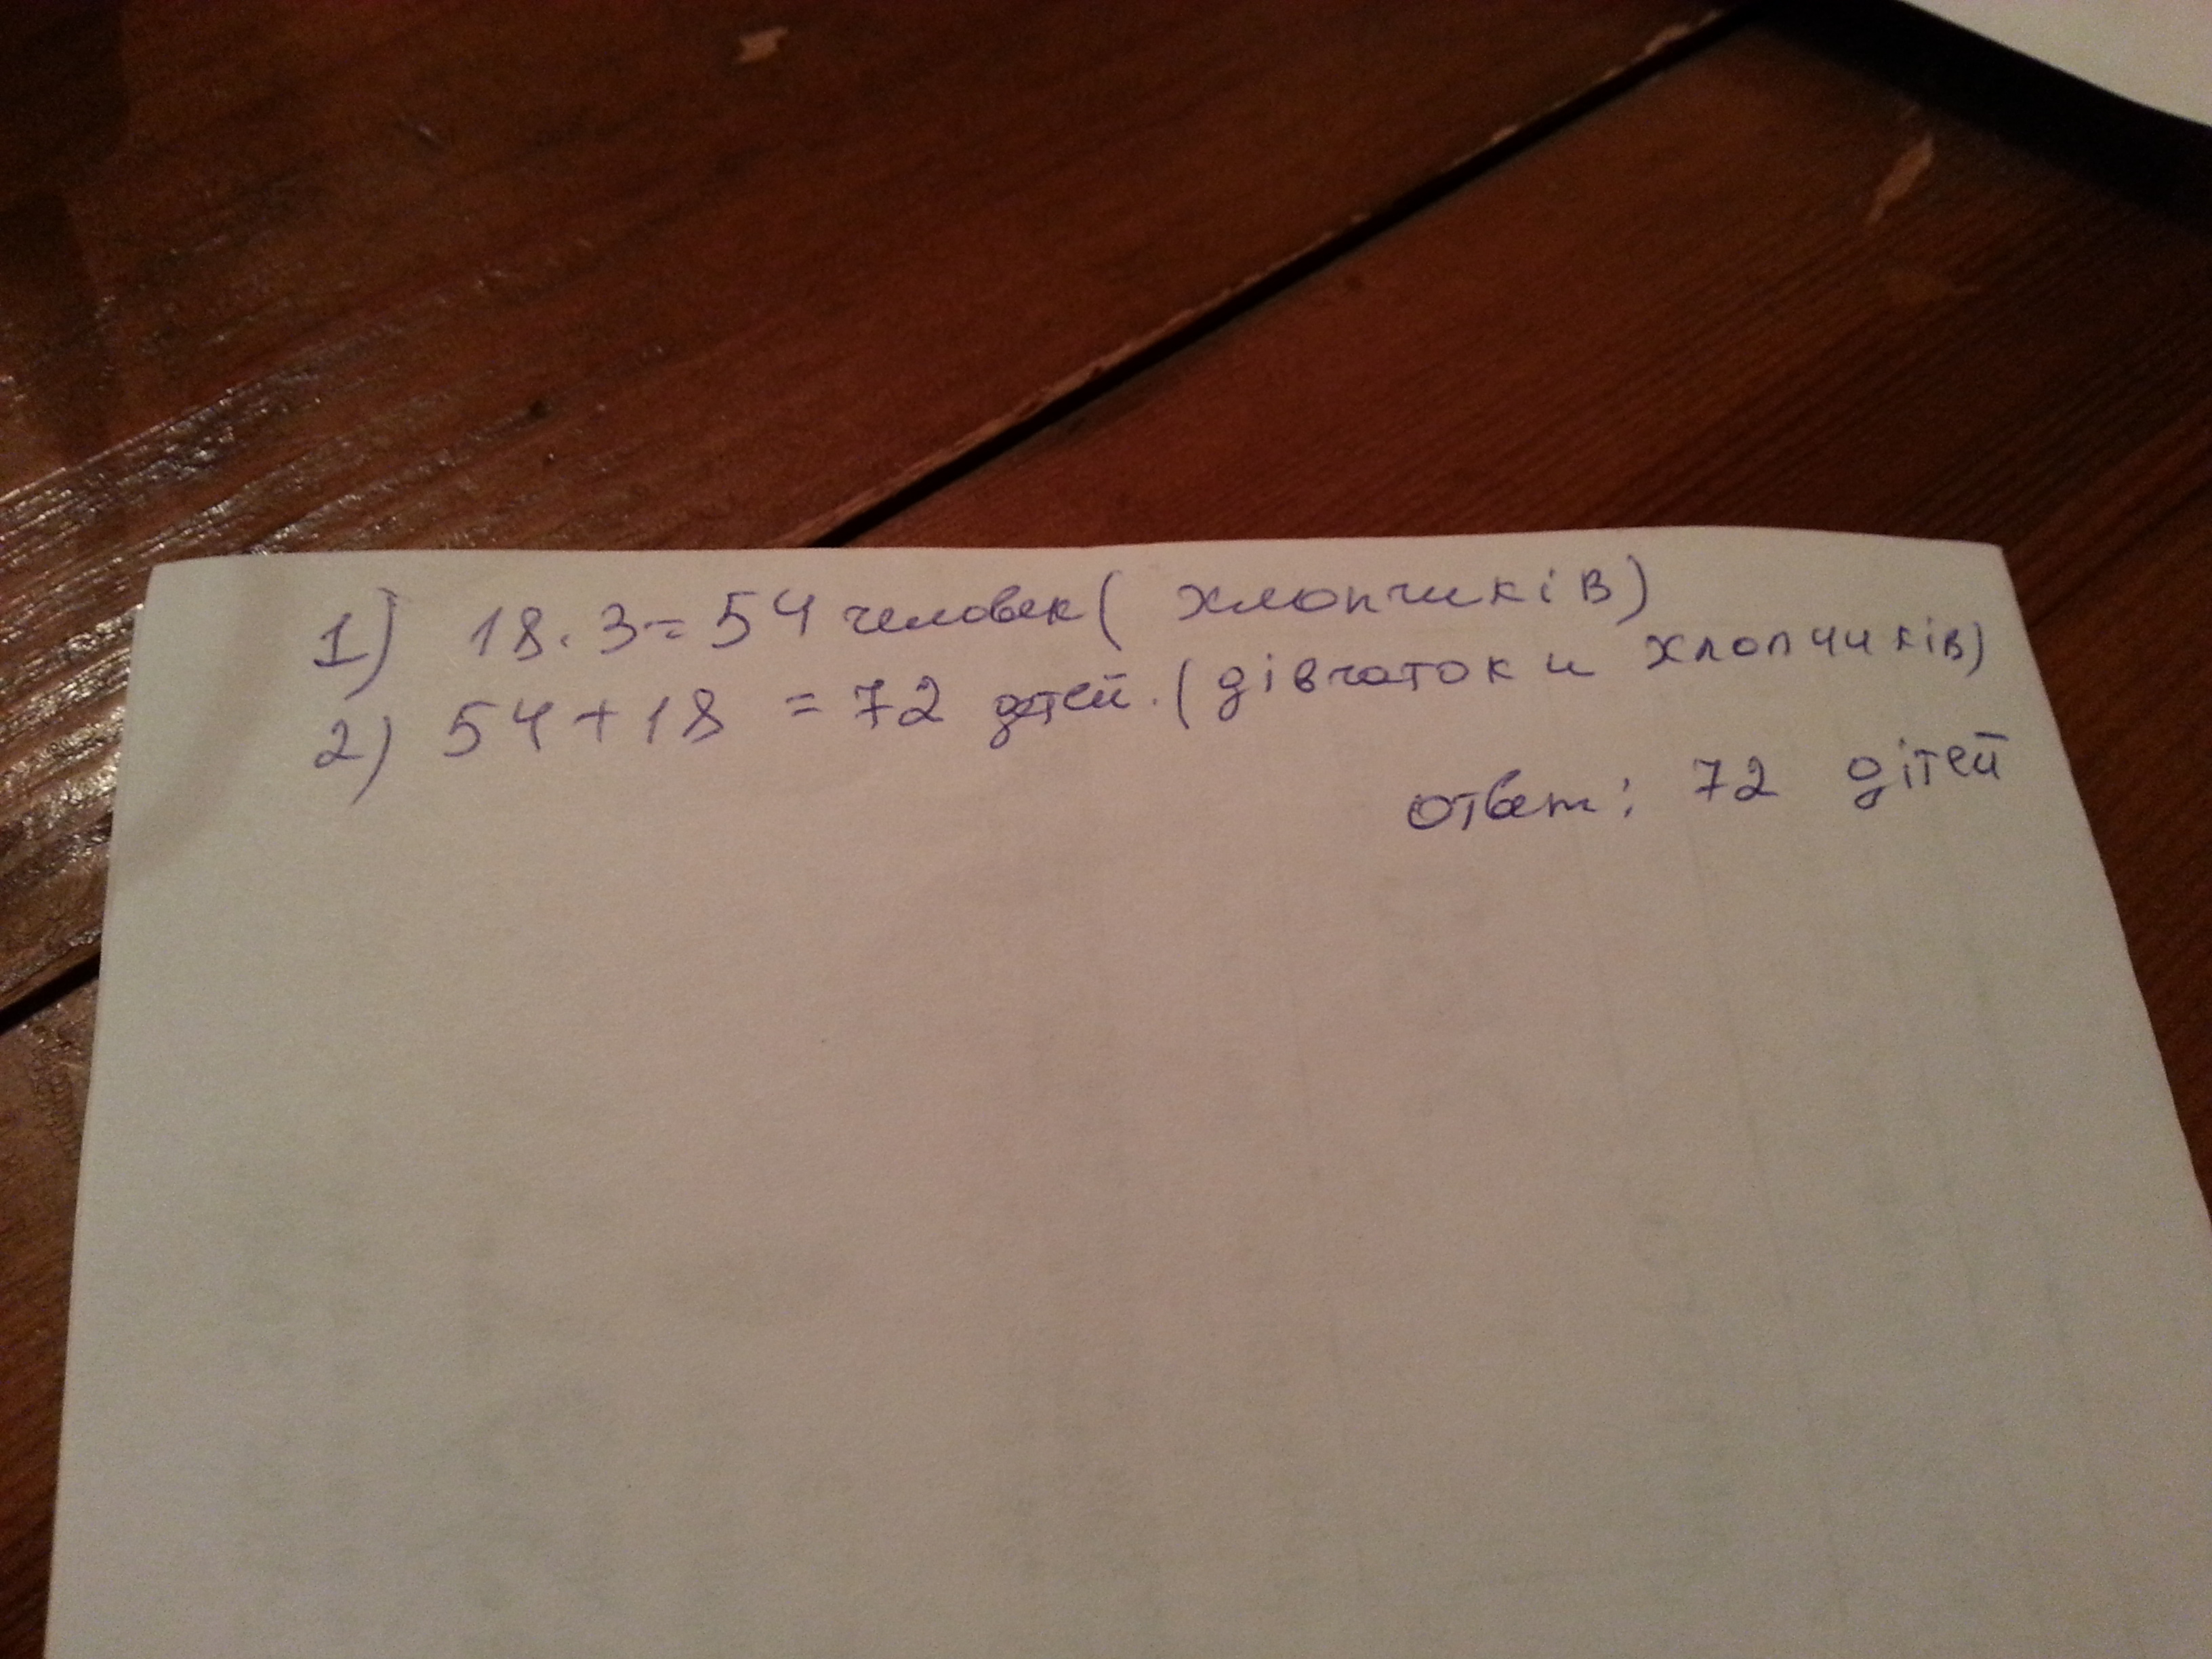 1) 18 · 3 = 54 человек ( хлопчиків)
2) 54 + 18 = 72 детей. ( дівчаток и хлопчиків)
ответ: 72 дітей